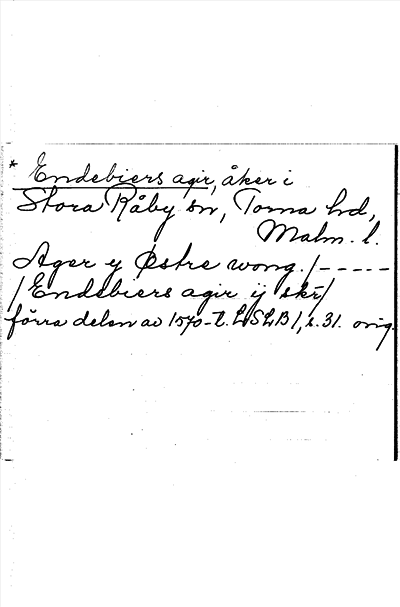 * Endebiers agir, åker i
Stora Råby sn, Torna hd,
Malm. l.
Ager ij Østre wong. /-----
/Endebiers agir ij skr̄/
förra delen av 1570-t. LSLB/, s. 31. orig.